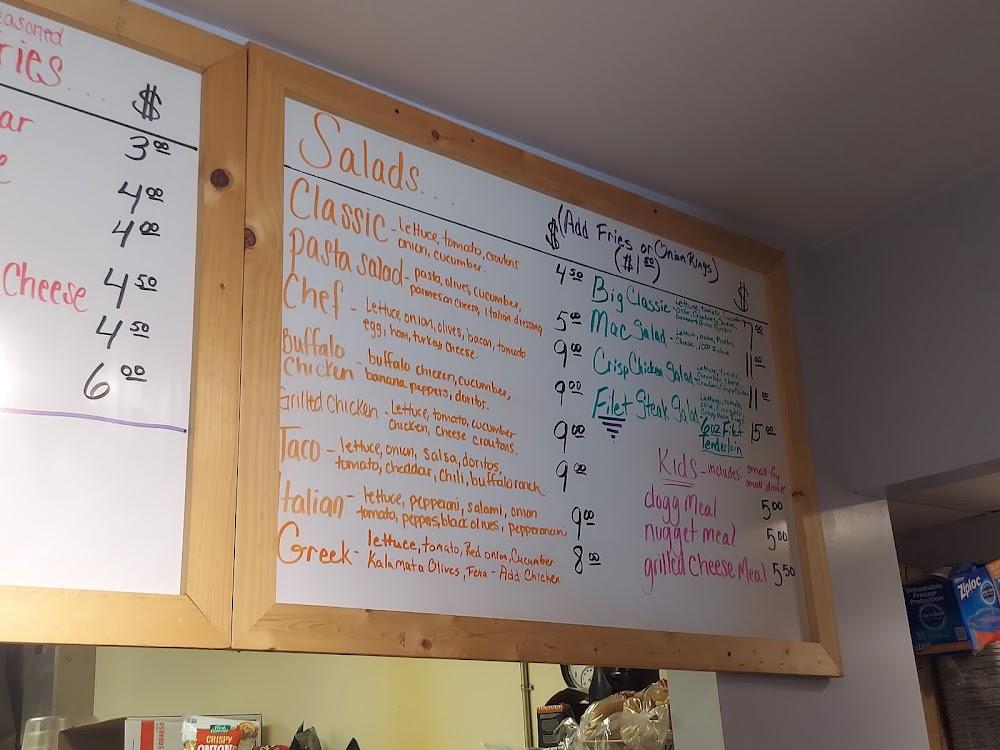 easoned
ries....
$
ar
3 00
e
4 00
4 00
Cheese
4 50
4 50
6 00
Salads....
$
(Add Fries or Onion Rings)
($1 50)
$
Classic - Lettuce, tomato, croutons
onion, cucumber.
4 50
pasta salad - pasta, olives, cucumber,
parmesan cheese, italian dressing
5 00
Chef - Lettuce, onion, olives, bacon, tomato
egg, ham, turkey, cheese.
9 00
Buffalo
Chicken - buffalo chicken, cucumber,
banana peppers, doritos.
9 00
Grilled Chicken - Lettuce, tomato, cucumber
chicken, cheese croutons.
9 00
Taco - lettuce, onion, salsa, doritos,
tomato, cheddar, chili, buffalo ranch
9 00
Italian - lettuce, pepperoni, salami, onion
tomato, peppers, black olives, pepperoncini
9 00
Greek - lettuce, tomato, Red onion, Cucumber
Kalamata Olives, Feta - Add Chicken
8 00
Big Classic - Lettuce, tomato, Cucumber
7 00
Mac Salad - Lettuce, onion, Pickles,
Cheese, 1000 Island
11 00
Crisp Chicken Salad - Lettuce, tomato,
Cucumber, cheese
11 00
Filet Steak Salad - Lettuce, tomato,
6oz Filet
Tenderloin
15 00
Kids - includes: small fry
small drink
dogg meal 5 00
nugget meal 5 00
grilled cheese Meal 5 50
Unbeatable
Freezer
Protection
Ziploc
CRISPY
ONIONS